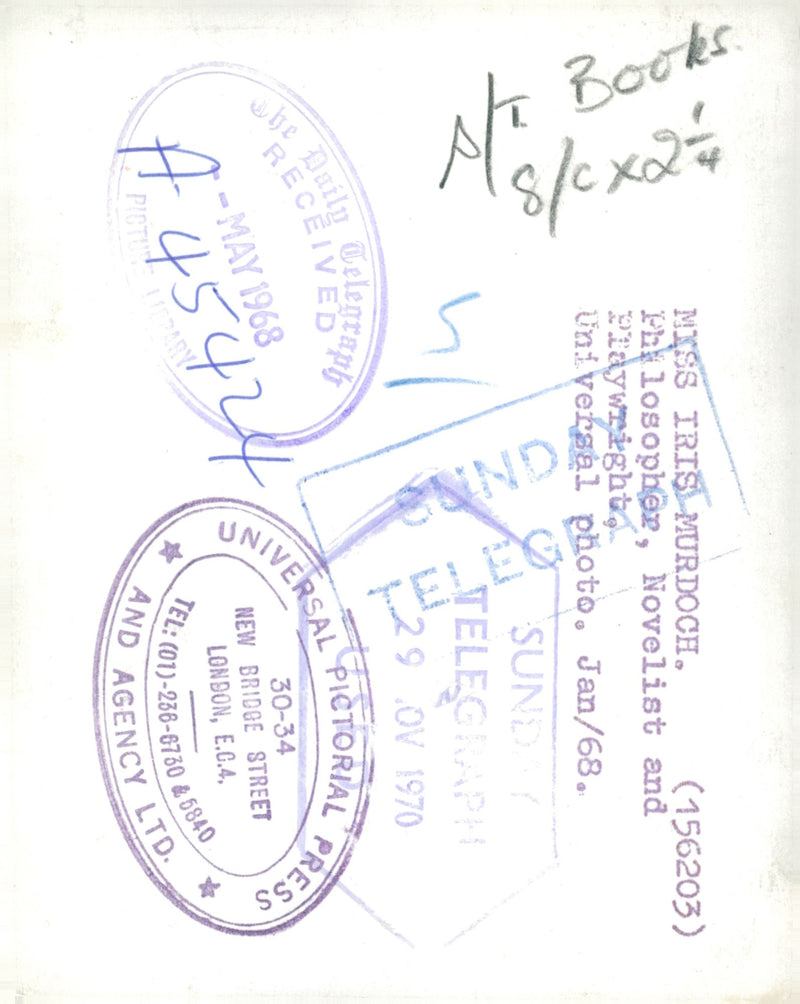 Books.
8/c x 2 1/4
The Daily Telegraph
RECEIVED
- MAY 1968
PICTURE LIBRARY
A 45424
MISS IRIS MURDOCH. (156203)
Philosopher, Novelist and
Playwright,
Universal photo. Jan/68.
SUNDAY
TELEGRAPH
SUNDAY
TELEGRAPH
29 OV 1970
USED
UNIVERSAL PICTORIAL PRESS
AND AGENCY LTD.
30-34
NEW BRIDGE STREET
LONDON, E.C.4.
TEL: (01)-236-6730 & 6840